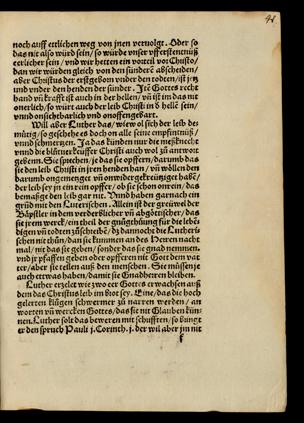 noch auff ettlichen weg von jnen vervolgt. Oder so
das nit also würd sein / so würde vnser vfferstentnüß
eerlicher sein / vnd wir hetten ein vorteil vor Christo /
dan wir würden gleich von den sünder abscheiden /
aber Christus der erstgeborn vnder den todten / ist jetz
vnd vnder den henden der sünder. Jtē Gottes recht
hand vñ krafft ist auch in der hellen / vñ ist im das nit
vnerlich / so würt auch der leib Christi in ð helle sein /
vnnd onsichtbarlich vnd onoffengebart.
Will aber Luther das / wie wol sich der leib de-
mütig / so geschehe es doch on alle seine empfintnüß /
vnnd schmertzen. Ja das künden nur die meßknecht
vnnd die blůtuerkeuffer Christi auch wol zů antwort
gebenn. Sie sprechen / je das sie opffern / darumb das
sie den leib Christi in jren henden han / vñ wöllen den
darumb on gemenget vñ onwider gekreütziget habē /
der leib sey in ein rein opffer / ob sie schon on rein / das
bemaßge den leib gar nit. Vnnd haben garnach ein
gründ mit den Luterischen. Allein ist der greüwel der
Bäpstler in dem verderblicher vñ abgöttischer / das
sie jrem werck / ein theil der gnůgthůung für die lebē-
digen vñ todten zůschreibē / dz dannocht die Lutheri-
schen nit thůn / dan sie kummen an des Herren nacht
mal / nit das sie geben / sunder das sie gnad nemmen.
vnd jr pfaffen geben oder opfferen nit Gott dem vat
ter / aber sie teilen auß den menschen. Sie müssen je
auch ettwas haben / damit sie Gnadherren bleiben.
Luther erzelet wie zwo eer Gottes erwachsen auß
dem das Christus leib im brot sey. Eine / das die hoch
gelerten klügen schwermer zů narren werden / an
worten vñ wercken Gottes / das sie nit Glauben kün-
nen. Luther solt das beweren mit schrifften / so bringt
er den spruch Pauli j. Corinth. j. der wil aber jm nit
f